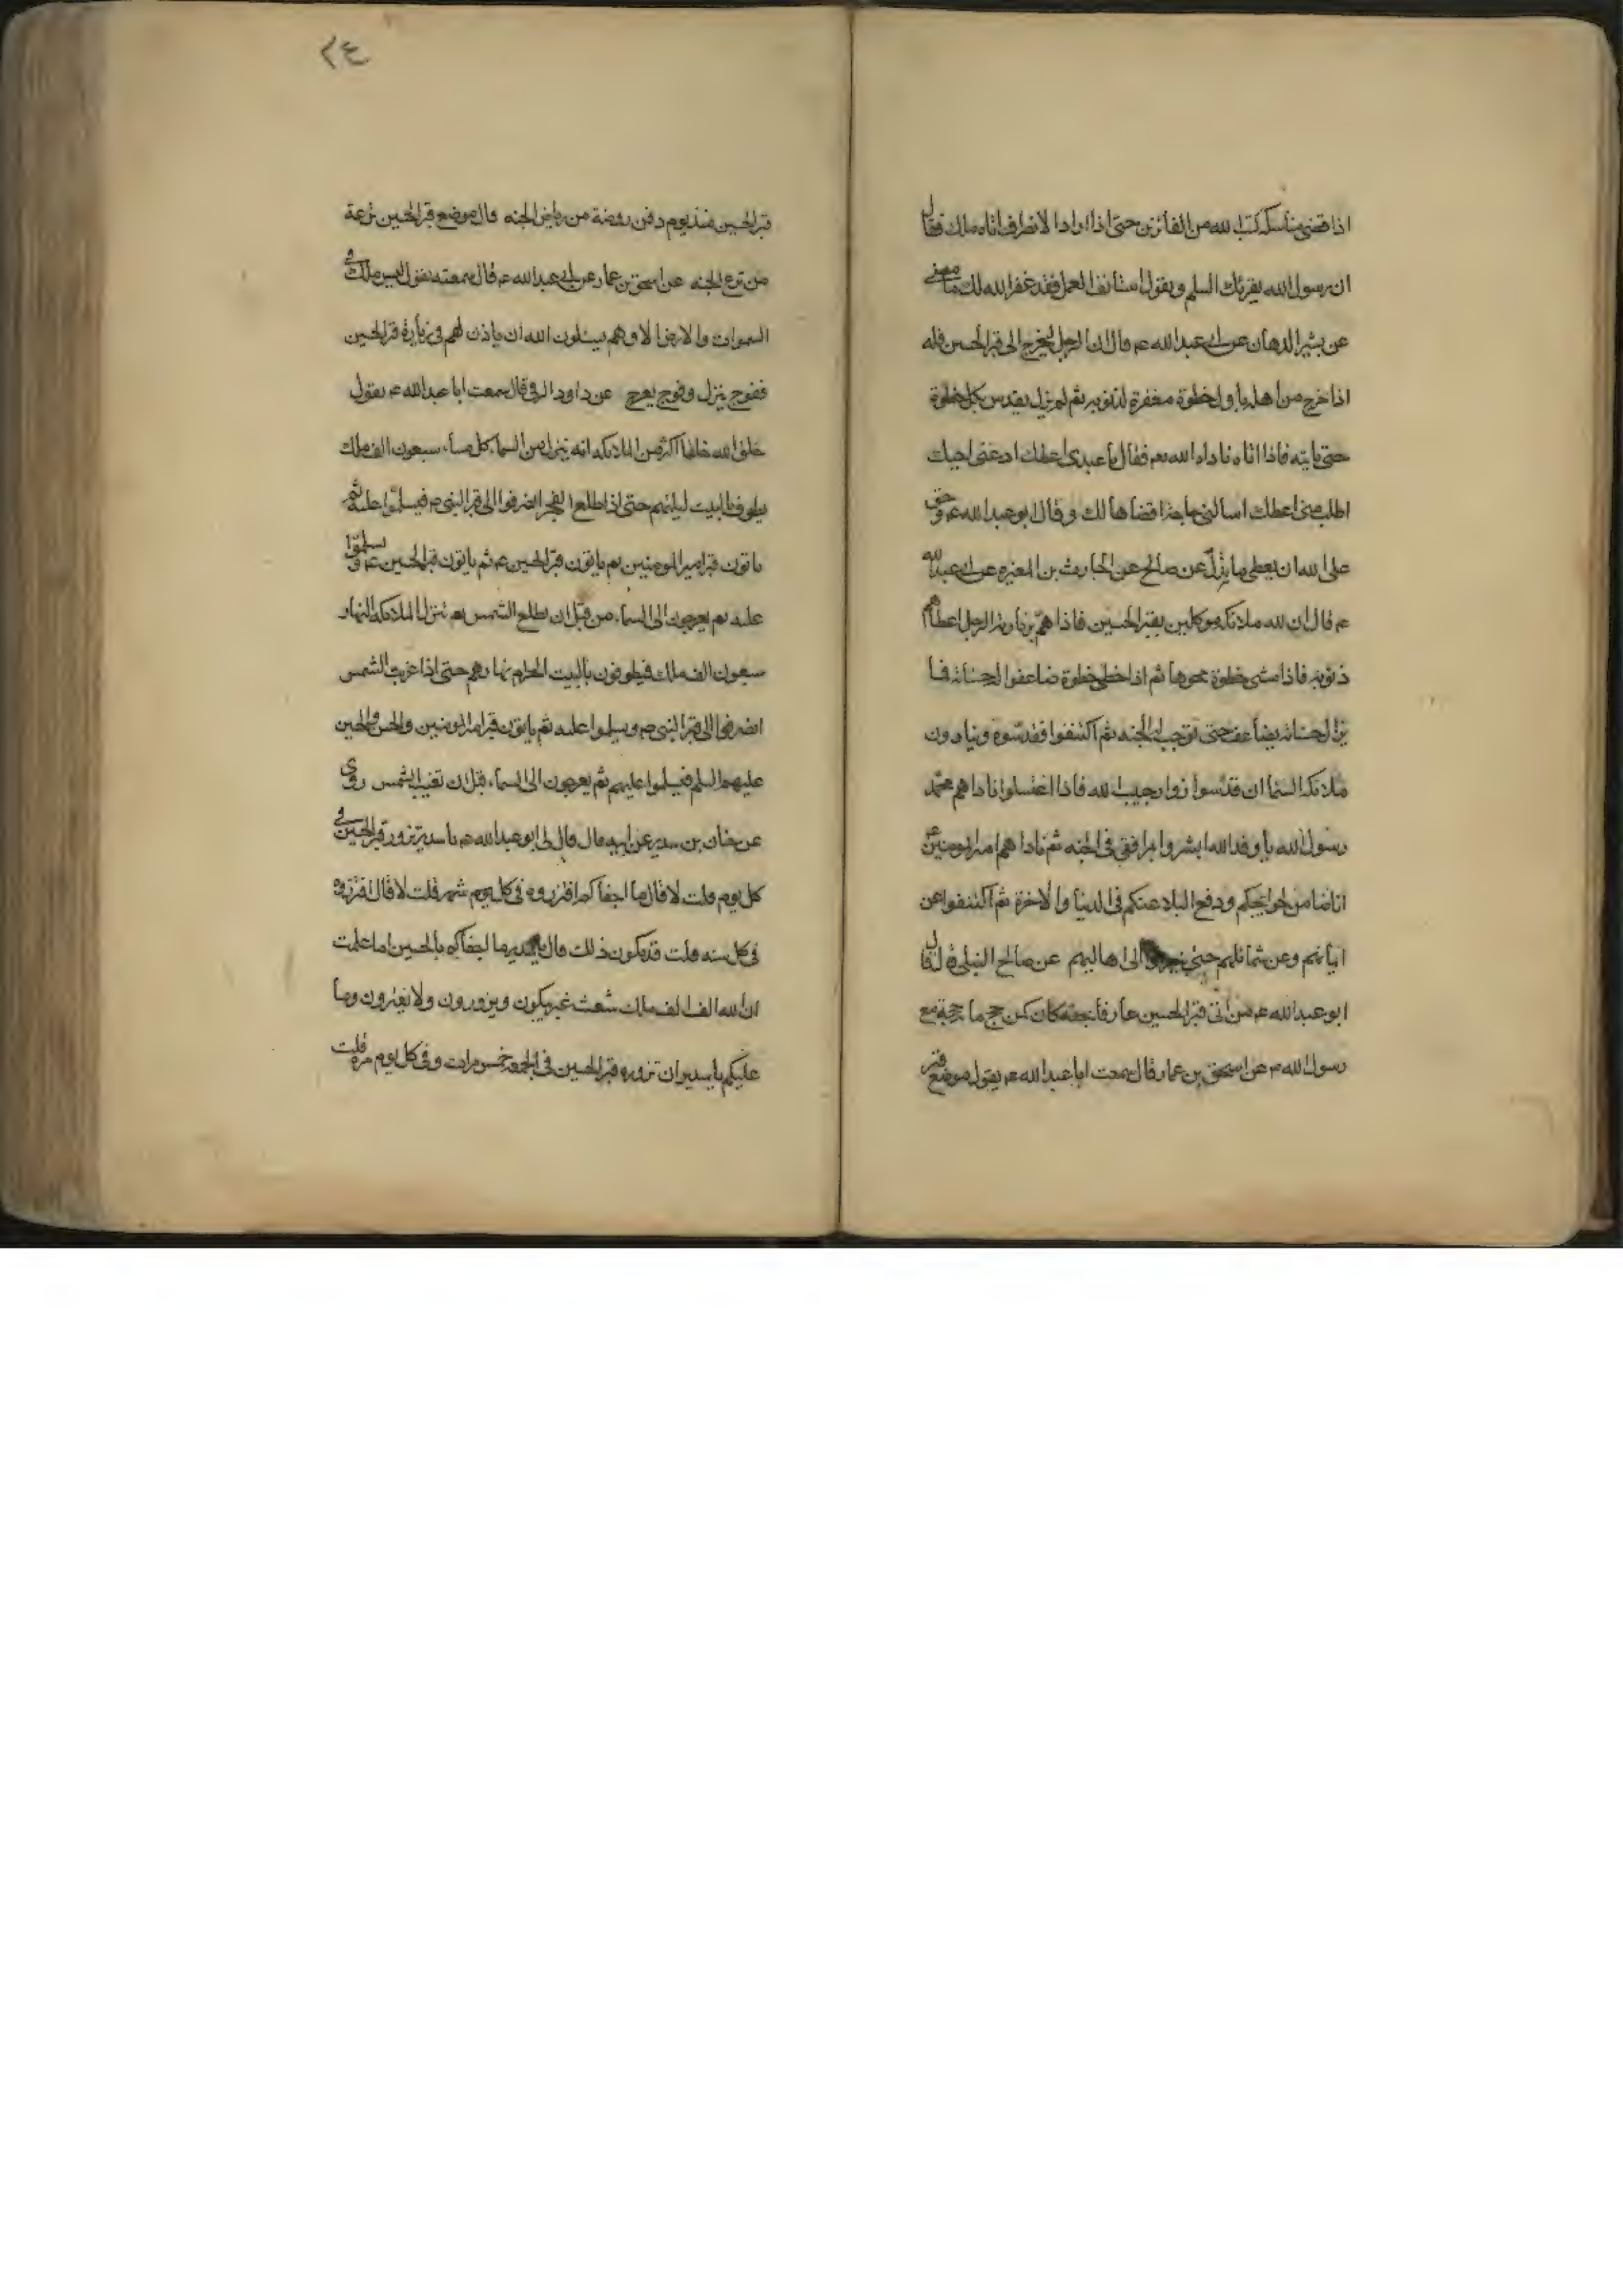 اذا قضى مناسكه كتب الله من الفائزين حتى اذا اراد الانصراف اتاه ملك فقال
ان رسول الله يقرئك السلم ويقول استأنف العمل فقد غفر الله لك ما مضى
عن بشير الدهان عن ابى عبدالله ع قال ان الرجل ليخرج الى قبر الحسين فله
اذا خرج من اهله باول خطوة مغفرة لذنوبه ثم لم يزل يقدس بكل خطوة
حتى ياتيه فاذا اتاه ناداه الله تع فقال يا عبدى اعطك ادعنى اجبك
اطلب منى اعطك اسالنى حاجة اقضاها لك وقال ابو عبدالله ع وحق
على الله ان يعطى ما بذل عن صالح عن الحارث بن المغيره عن ابى عبدالله
ع قال ان لله ملائكه موكلين بقبر الحسين فاذا هم بزيارته الرجل اعطاهم
ذنوبه فاذا مشى خطوة محوها ثم اذا خطى خطوة ضاعفوا له حسناته فما
يزال حسناته يضاعف حتى توجب له الجنه ثم اكتنفوا فقدسوه وينادون
ملائكة السما ان قدسوا زوار حبيب الله فاذا اغتسلوا ناداهم محمد
رسول الله يا وفد الله ابشروا بمرافقتى فى الجنه ثم ناداهم امير المومنين ع
انا ضامن لحوايجكم ودفع البلا عنكم فى الدنيا والاخرة ثم اكتنفوا عن
ايمانهم وعن شمائلهم حتى الى اهاليهم عن صالح النيلى قال
ابو عبدالله ع من اتى قبر الحسين عارفا بحقه كان كمن حج مائة حجة مع
رسول الله ص عن اسحق بن عمار قال سمعت ابا عبدالله ع يقول موضع قبر
٢٤
قبر الحسين منذ يوم دفن روضة من رياض الجنه وقال موضع قبر الحسين ترعة
من ترع الجنه عن اسحق بن عمار عن ابى عبدالله ع قال سمعته يقول ليس ملك فى
السموات والارض الا وهم يسئلون الله ان ياذن لهم فى زيارة قبر الحسين
ففوج ينزل وفوج يعرج عن داود الرقى قال سمعت ابا عبدالله ع يقول
خلق الله خلقا اكثر من الملائكه انه ينزل من السما كل مساء سبعون الف ملك
يطوف بالبيت ليلتهم حتى اذا طلع الفجر انصرفوا الى قبر النبى ص فيسلموا عليه ثم
ياتون قبر امير المومنين ثم ياتون قبر الحسين ع ثم ياتون قبر الحسين ع ويسلموا
عليه ثم يعرجون الى السماء من قبل ان تطلع الشمس ثم تنزل الملائكة النهار
سبعون الف ملك فيطوفون بالبيت الحرام نهارهم حتى اذا غربت الشمس
انصرفوا الى قبر النبى ص ويسلموا عليه ثم ياتون قبر امير المومنين والحسن والحسين
عليهم السلم فيسلموا عليهم ثم يعرجون الى السماء قبل ان تغيب الشمس روى
عن حنان بن سدير عن ابيه قال قال لى ابو عبدالله ع يا سدير تزور قبر الحسين فى
كل يوم قلت لا قال ما اجفاكم افتزروه فى كل يوم شهر قلت لا قال افتزروه
فى كل سنه قلت قد يكون ذلك قال يا سدير ما اجفاكم بالحسين اما علمت
ان لله الف الف ملك شعث غبر يبكون ويزورون ولا يفترون وما
عليكم يا سدير ان تزوره قبر الحسين فى الجمعه خمس مرات وفى كل يوم مرة قلت